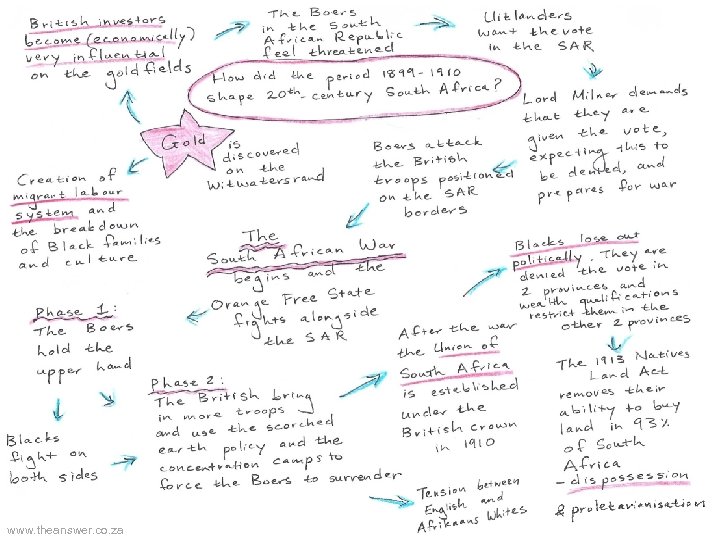 British investors
become (economically)
very influential
on the goldfields
The Boers
in the South
African Republic
feel threatened
Uitlanders
want the vote
in the SAR
How did the period 1899-1910
shape 20th-century South Africa?
Lord Milner demands
that they are
given the vote,
expecting this to
be denied, and
prepares for war
Gold is
discovered
on the
Witwatersrand
Boers attack
the British
troops positioned
on the SAR
borders
Creation of
migrant labour
system and
the breakdown
of Black families
and culture
The
South African War
begins and the
Orange Free State
fights alongside
the SAR
Blacks lose out
politically. They are
denied the vote in
2 provinces and
wealth qualifications
restrict them in the
other 2 provinces
Phase 1:
The Boers
hold the
upper hand
Blacks
fight on
both sides
Phase 2:
The British bring
in more troops
and use the scorched
earth policy and the
concentration camps to
force the Boers to surrender
After the war
the Union of
South Africa
is established
under the
British crown
in 1910
The 1913 Natives
Land Act
removes their
ability to buy
land in 93%
of South
Africa
- dispossession
& proletarianisation
Tension between
English and
Afrikaans Whites
www.theanswer.co.za